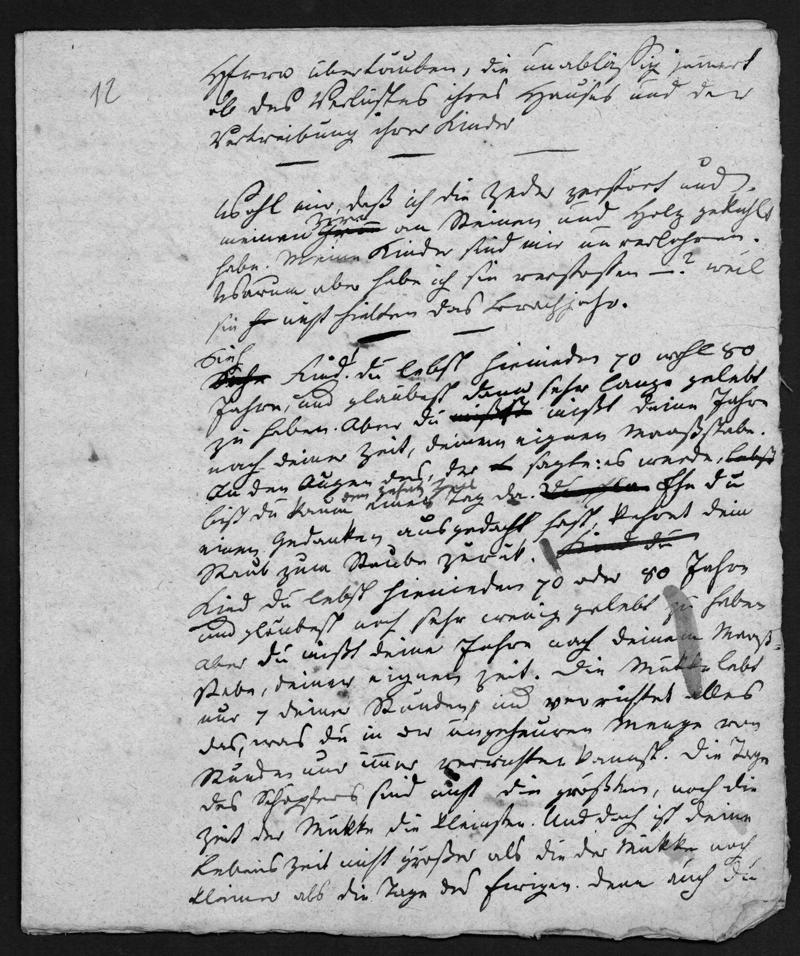 12
Herrn übertäuben, die unabläßig jammert
ob des Verlustes ihres Hauses und der
Vertreibung ihrer Kinder
Wohl mir, daß ich die Zeder zerstört und
meinen Zorn an Steinen und Holz gekühlt
habe. Meine Kinder sind mir unverlohren.
Warum aber habe ich sie verstossen —? weil
sie nicht hielten das Brachjahr.
Sieh
Kind! du lebst hienieden 70 wohl 80
Jahre, und glaubest dann sehr lange gelebt
zu haben. Aber du mißt deine Jahre
nach deiner Zeit, deinem eignen Maaßstabe.
In den Augen des, der sagte: es werde, lebst
bist du kaum einen Tag da. Ehe du
einen Gedanken ausgedacht hast, kehret dein
Staub zum Staube zurük. Kind du
Kind du lebst hienieden 70 oder 80 Jahre
und glaubest noch sehr wenig gelebt zu haben
aber du mißt deine Jahre nach deinem Maaß-
stabe, deiner eignen Zeit. Die Mükke lebt
nur 7 deiner Stunden, und verrichtet alles
das, was du in der ungeheuren Menge von
Stunden nur immer verrichten kannst. Die Tage
des Schöpfers sind nicht die größten, noch die
Zeit der Mükke die kleinsten. Und doch ist deine
Lebenszeit nicht größer als die der Mükke noch
kleiner als die Tage des Ewigen. Denn auch du